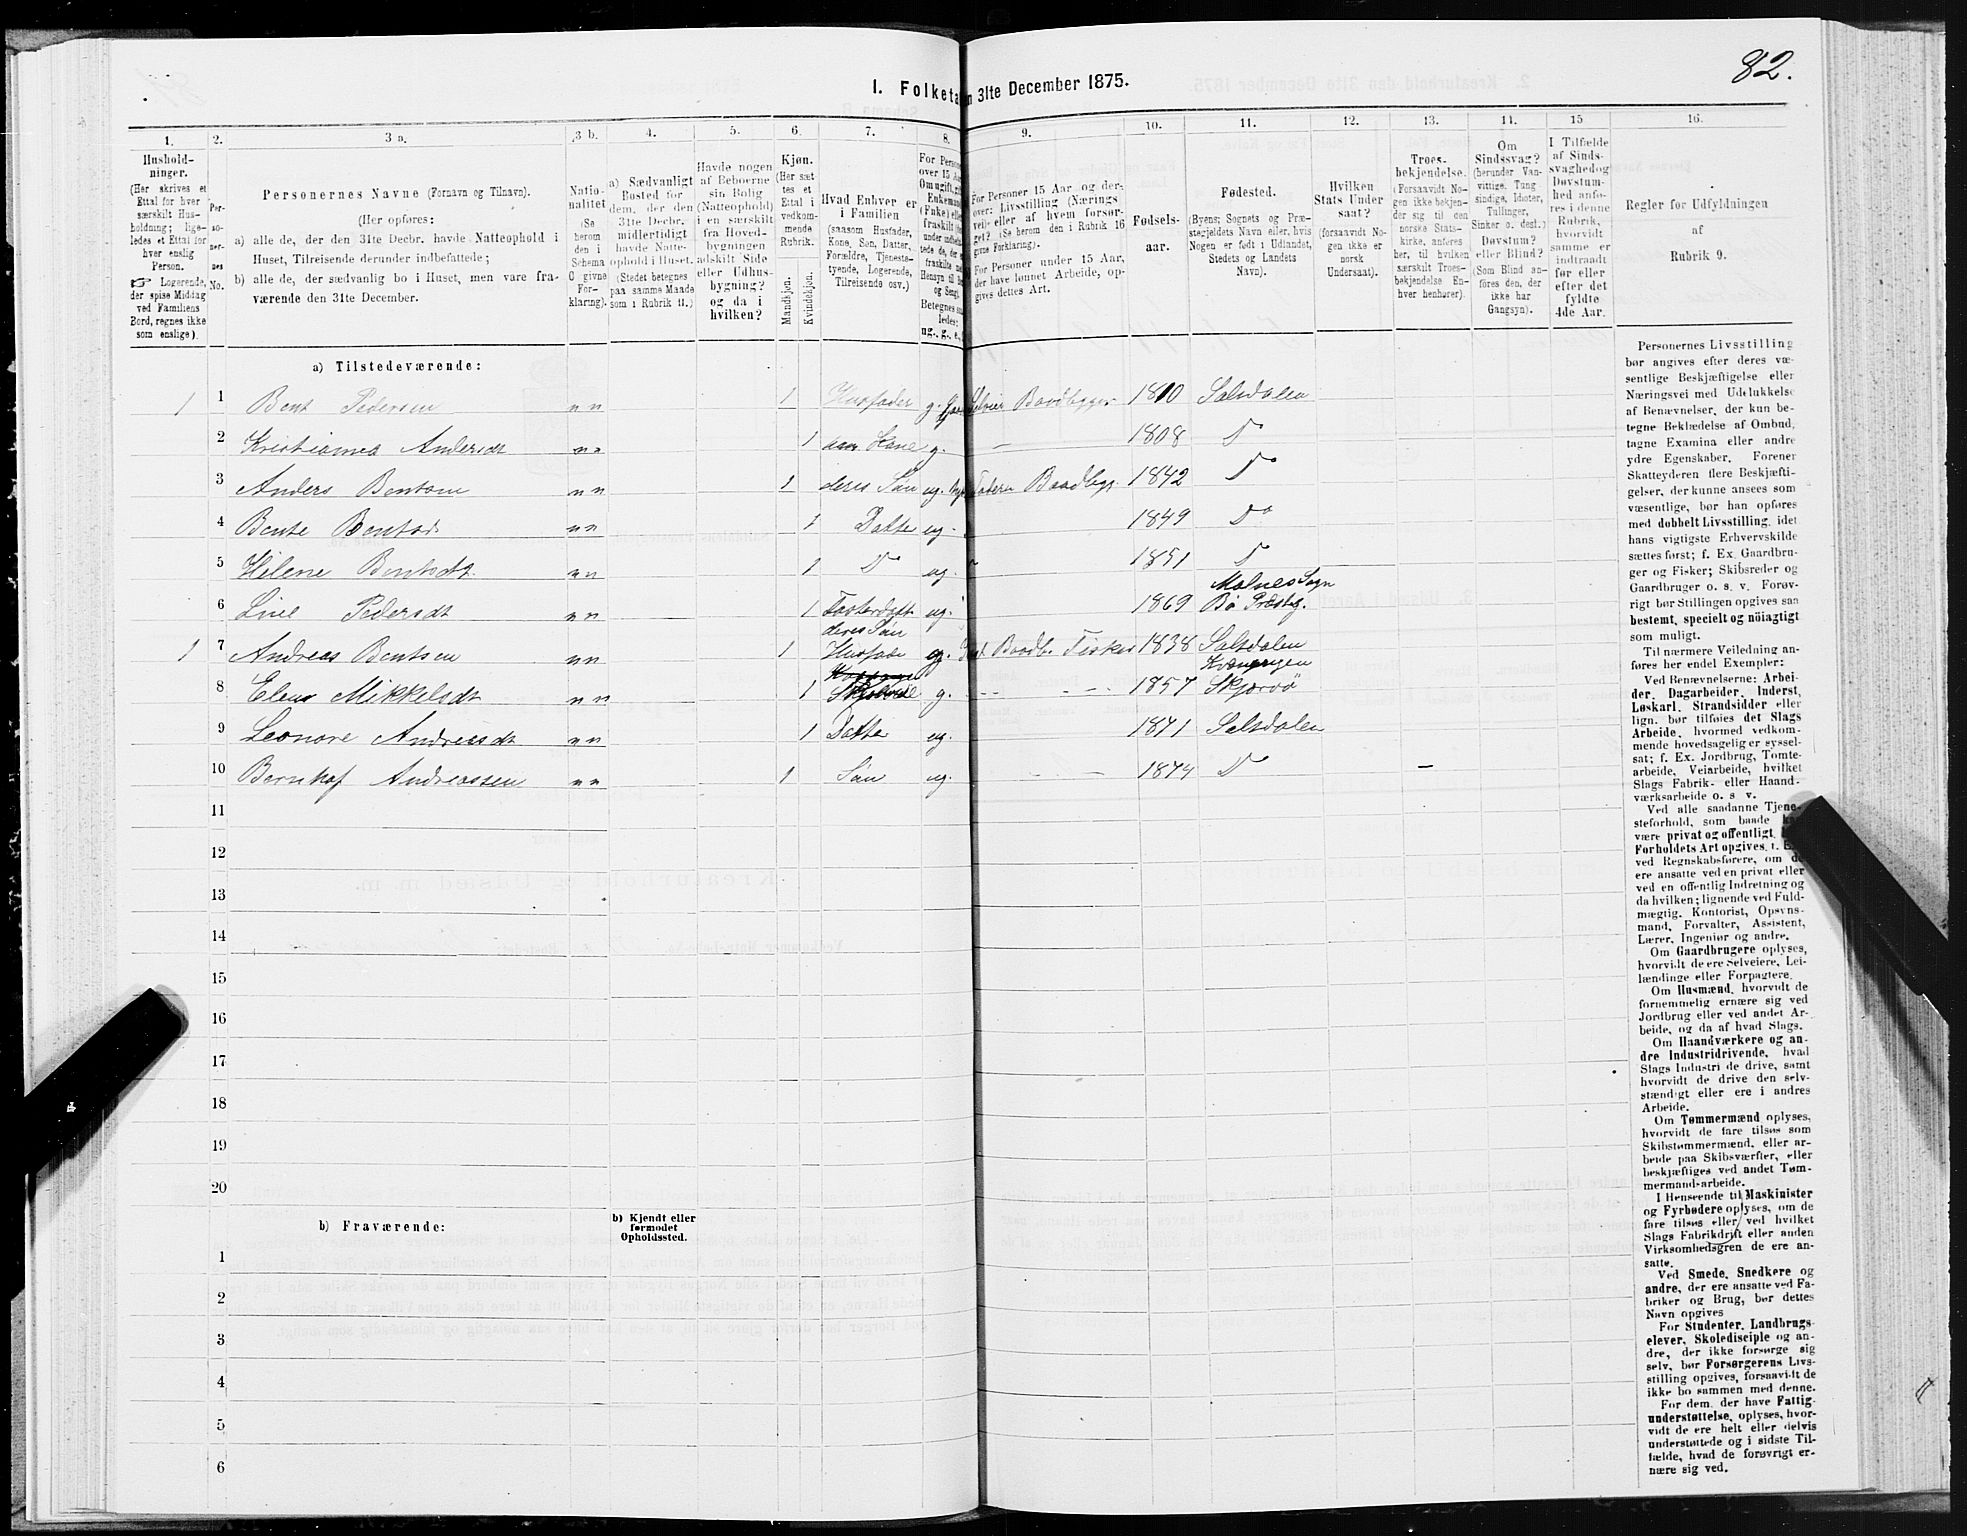 82.
1. Folketa n 31te December 1875.
1. 2. 3 a. 3 b. 4. 5. 6. 7. 8. 9. 10. 11. 12. 13. 14. 15 16.
Hushold-
ninger.
(Her skrives et
Ettal for hver
særskilt Hus-
holdning; lige-
ledes et Ettal for
hver enslig
Person.
☞ Logerende,
der spise Middag
ved Familiens
Bord, regnes ikke
som enslige).
Per-
so-
ner-
nes
No.
Personernes Navne (Fornavn og Tilnavn).
(Her opføres:
a) alle de, der den 31te Decbr. havde Natteophold i
Huset, Tilreisende derunder indbefattede;
b) alle de, der sædvanlig bo i Huset, men vare fra-
værende den 31te December.
Natio-
nalitet
(Se
herom
den i
Schema
C givne
For-
klaring).
a) Sædvanligt
Bosted for
dem, der den
31te Decbr.
midlertidigt
havde Natte-
ophold i Huset.
(Stedet betegnes
paa samme Maade
som i Rubrik 11.)
Havde nogen
af Beboerne
sin Bolig
(Natteophold)
i en særskilt
fra Hoved-
bygningen
adskilt Side
eller Udhus-
bygning?
og da i
hvilken?
Kjøn.
(Her sæt
tes et
Ettal i
vedkom-
mende
Rubrik.
Mandkjøn.
Kvindekjøn.
Hvad Enhver er
i Familien
(saasom Husfader,
Kone, Søn, Datter,
Forældre, Tjeneste-
tyende, Logerende,
Tilreisende osv.)
For Person
over 15 Aar
Om ugift, gift
Enkemand
(Enke) eller
fraskilt
Betegnes saa
ledes:
ug., g., e.,
For Personer 15 Aar og der-
over: Livsstilling (Nærings
vei) eller af hvem forsør-
get? (Se herom den i Rubrik 16
givne Forklaring).
For Personer under 15 Aar,
der have lønnet Arbeide, op-
gives dettes Art.
Fødsels-
aar.
Fødested.
(Byens, Sognets og Præ-
stegjeldets Navn eller, hvis
Nogen er født i Udlandet,
Stedets og Landets
Navn).
Hvilken
Stats Under
saat?
(forsaavidt No-
gen ikke er
norsk
Undersaat).
Troes-
bekjendelse.
(Forsaavidt No-
gen ikke bekjen-
der sig til den
norske Stats-
kirke, anføres
her, til hvilken
særskilt Troes-
bekjendelse En-
hver henhører).
Om
Sindssvag?
(herunder Van-
vittige, Tung
sindige, Idioter,
Tullinger,
Sinker o. desl.)
Døvstum?
eller Blind?
(Som Blind an-
føres den, der
ikke har
Gangsyn).
I Tilfælde
af Sinds-
svaghed og
Døvstum-
hed anfø-
res i denne
Rubrik,
hvorvidt
samme er
indtraadt
før eller
efter det
fyldte
4de Aar.
Regler for Udfyldningen
af
Rubrik 9.
a) Tilstedeværende:
1 1 Bent Pedersen nn 1 Husfader g. Selveier Baadbygger 1810 Salsdalen
2 Kristianna Andersdt nn 1 hans Kone g. — 1808 Do
3 Anders Bentsen nn 1 deres Søn ug. Baadbyg. 1842 Do
4 Bente Bentsd nn 1 Datte ug. 1849 Do
5 Helene Bentsdt nn 1 D ug. 1851 D
6 Line Pedersdt nn 1 Fosterdatt ug. 1869 Malnes Sogn
Bø Præstg.
deres Søn
1 7 Andreas Bentsen nn 1 Husfade g. Baadb. Fisker 1838 Salsdalen
8 Elen Mikkelsdt nn 1 g. 1857 Kvænangen
Skjervö
9 Leonore Andreasdt nn 1 Datte ug. 1871 Salsdalen
10 Bernhof Andreassen nn 1 Søn ug. — 1874 D —
11
12
13
14
15
16
17
18
19
20
b) Fraværende:
b) Kjendt eller
formodet
Opholdssted.
1
2
3
4
5
6
Personernes Livsstilling
bør angives efter deres væ-
sentlige Beskjæftigelse eller
Næringsvei med Udelukkelse
af Benævnelser, der kun be-
tegne Beklædelse af Ombud,
tagne Examina eller andre
ydre Egenskaber. Forener
Skatteyderen flere Beskjæfti-
gelser, der kunne ansees som
væsentlige, bør han opføres
med dobbelt Livsstilling, idet
hans vigtigste Erhvervskilde
sættes først; f. Ex. Gaardbru-
ger og Fisker; Skibsreder og
Gaardbruger o. s. v. Forøv-
rigt bør Stillingen opgives saa
bestemt, specielt og nöiagtigt
som muligt.
Til nærmere Veiledning an-
føres her endel Exempler:
Ved Benævnelserne: Arbei-
der, Dagarbeider, Inderst,
Løskarl, Strandsidder eller
lign. bør tilføies det Slags
Arbeide, hvormed vedkom-
mende hovedsagelig er syssel-
sat; f. Ex. Jordbrug, Tomte-
arbeide, Veiarbeide, hvilket
Slags Fabrik- eller Haand-
værksarbeide o. s. v.
Ved alle saadanne Tjene-
steforhold, som baade
være privat og offentligt,
Forholdets Art opgives,
ved Regnskabsførere, om de
ere ansatte ved en privat eller
ved en offentlig Indretning og
da hvilken; lignende ved Fuld-
mægtig, Kontorist, Opsyns-
mand, Forvalter, Assistent,
Lærer, Ingeniør og andre.
Om Gaardbrugere oplyses,
hvorvidt de ere Selveiere, Lei-
lændinge eller Forpagtere.
Om Husmænd, hvorvidt de
fornemmelig ernære sig ved
Jordbrug eller ved andet Ar-
beide, og da af hvad Slags.
Om Haandværkere og an-
dre Industridrivende, hvad
Slags Industri de drive, samt
hvorvidt de drive den selv-
stændigt eller ere i andres
Arbeide.
Om Tømmermænd oplyses,
hvorvidt de fare tilsøs som
Skibstømmermænd, eller ar-
beide paa Skibsværfter, eller
beskjæftiges ved andet Tøm-
mermandsarbeide.
I Henseende til Maskinister
og Fyrbødere oplyses, om de
fare tilsøs eller ved hvilket
Slags Fabrikdrift eller anden
Virksomhedsgren de ere an-
satte.
Ved Smede, Snedkere og
andre, der ere ansatte ved Fa-
briker og Brug, bør dettes
Navn opgives
For Studenter, Landbrugs-
elever, Skoledisciple og an-
dre, der ikke forsørge sig
selv, bør Forsørgerens Livs-
stilling opgives, forsaavidt de
ikke bo sammen med denne.
For dem, der have Fattig-
understøttelse, oplyses, hvor-
vidt de ere helt eller delvis
understøttede og i sidste Til-
fælde, hvad de forøvrigt er-
nære sig ved.